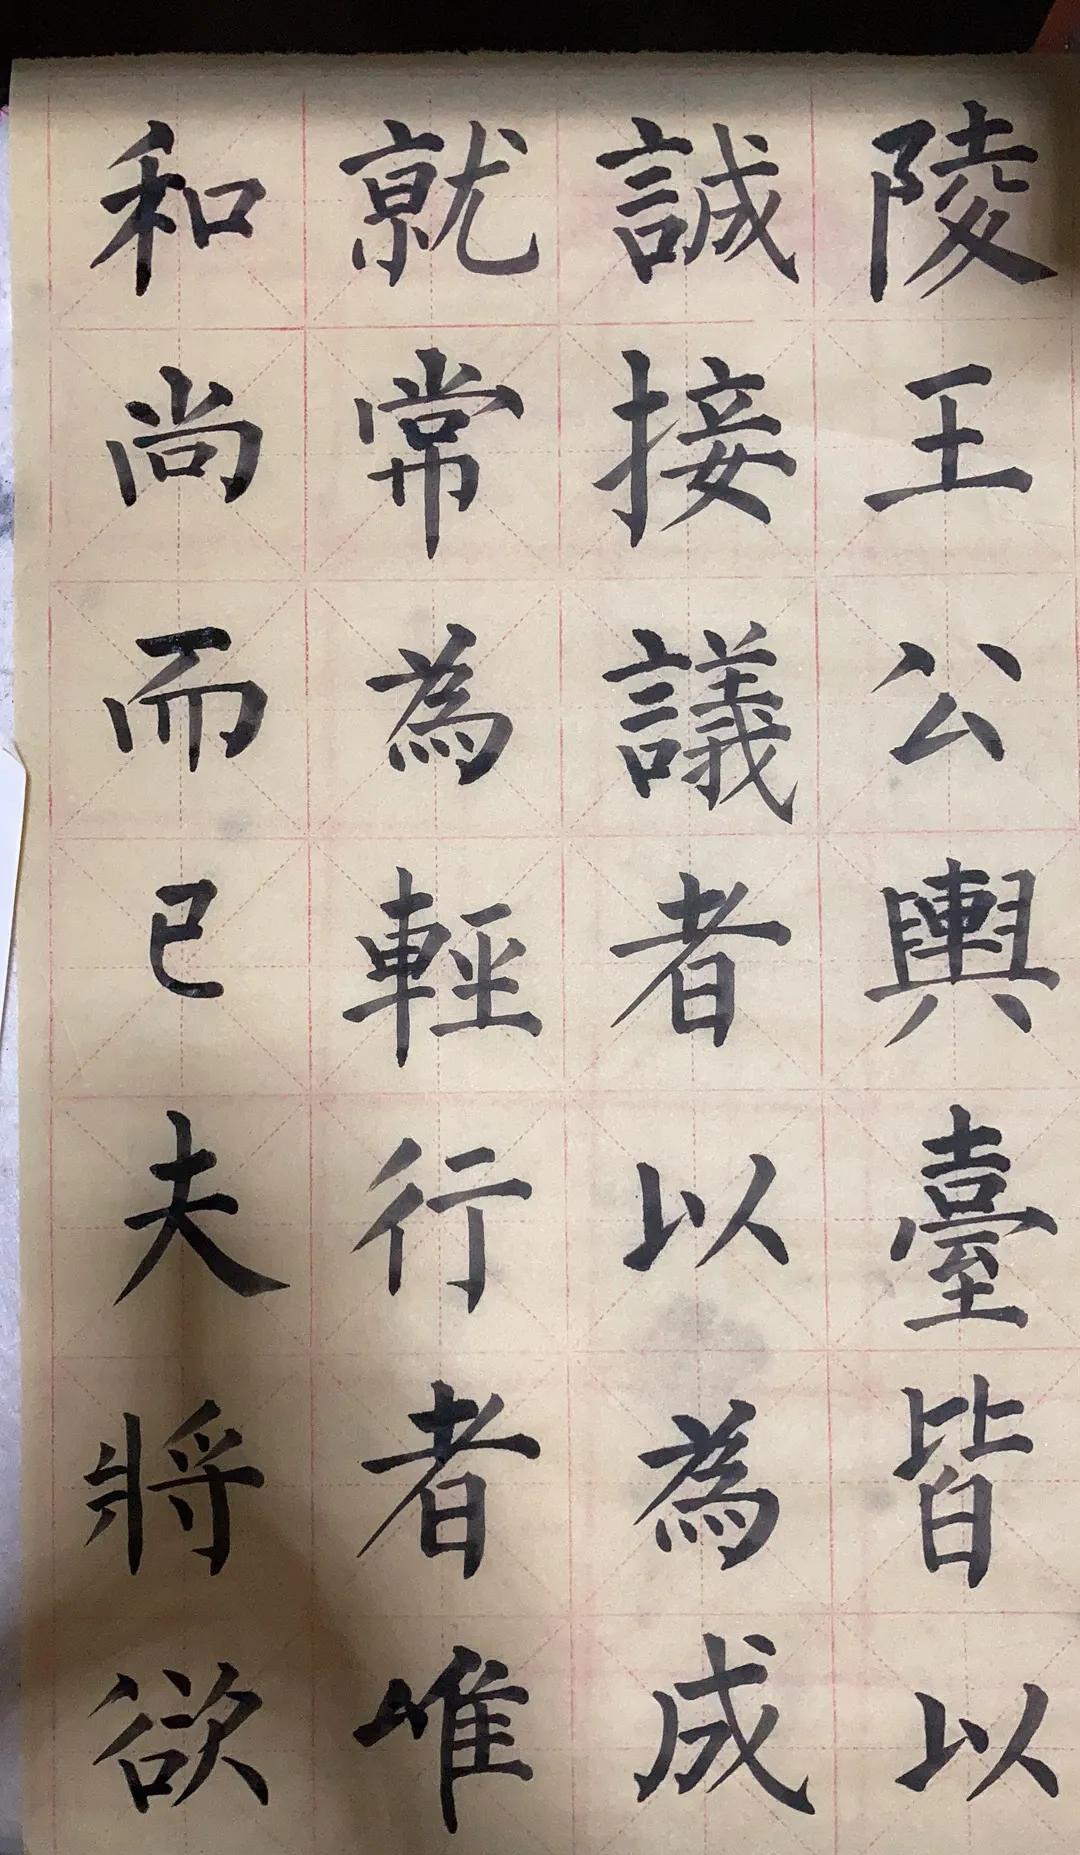 陵王公輿臺皆以
誠接議者以為成
就常為輕行者唯
和尚而已夫將欲